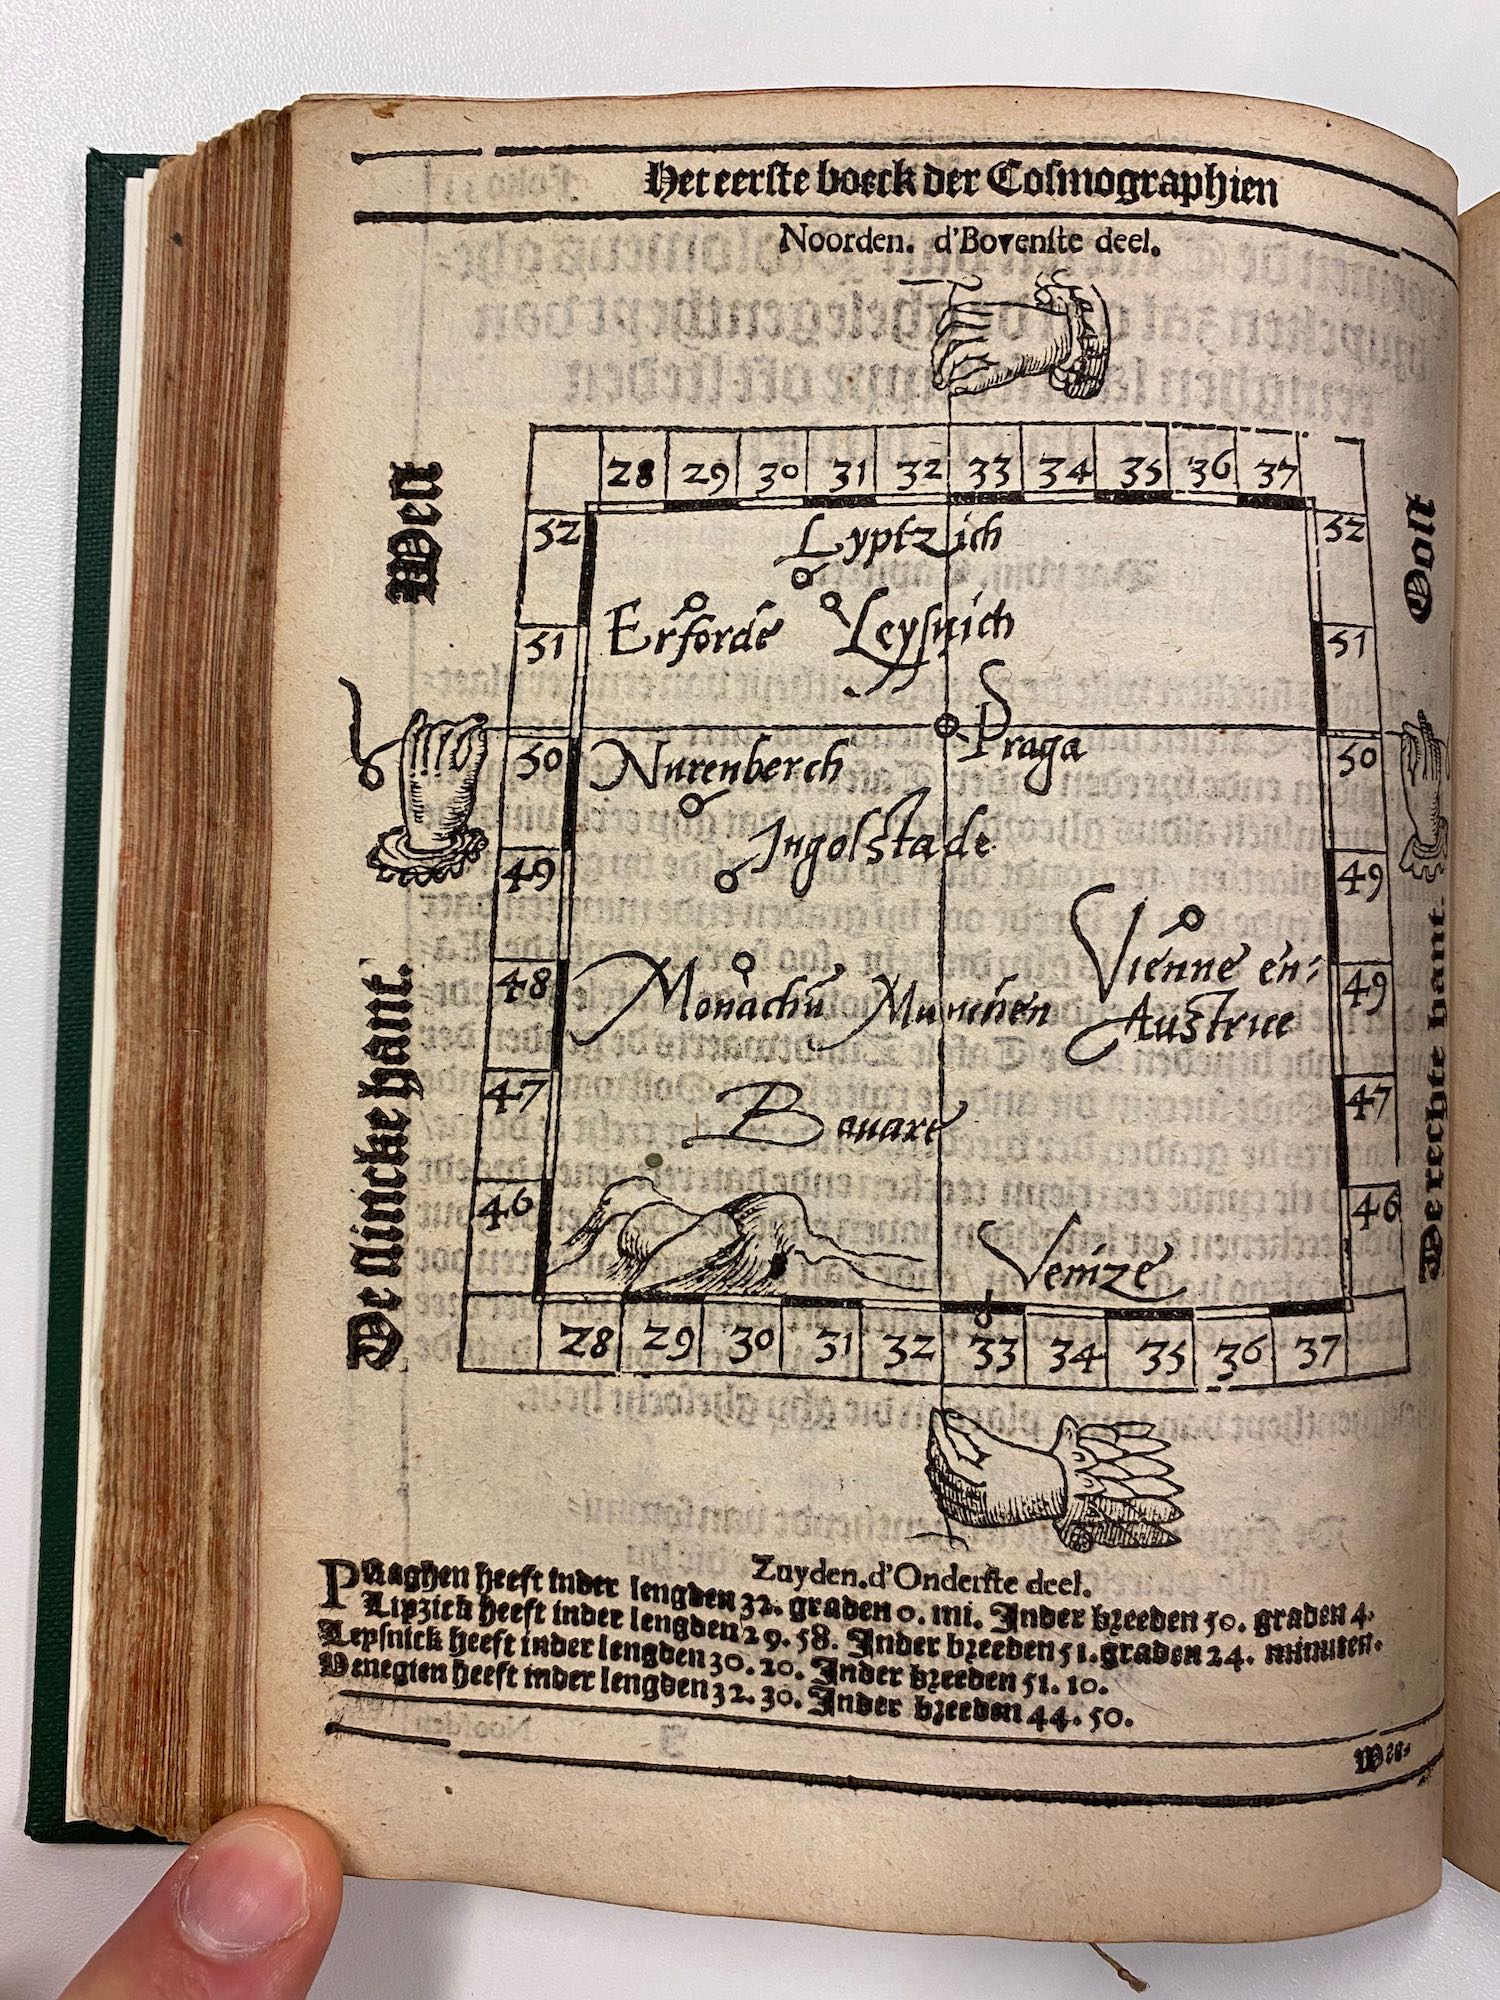 Het eerste boeck der Cosmographien
Noorden. d'Bovenste deel.
West
Oost
28 29 30 31 32 33 34 35 36 37
52 52
Lyptzich
Erforde Leysnich
51 51
Praga
50 50
Nurenberch
Ingolstade
49 49
Vienne en:
Austrice
48 49
Monachū Munchen
47 47
Bauare
46 46
Venize
28 29 30 31 32 33 34 35 36 37
De slincke hant.
De rechte hant.
Zuyden. d'Onderste deel.
PRaghen heeft inder lengden 32. graden 0. mi. Inder breeden 50. graden 4.
Lipzick heeft inder lengden 29. 58. Inder breeden 51. graden 24. minuten.
Leysnick heeft inder lengden 30. 20. Inder breeden 51. 10.
Venegien heeft inder lengden 32. 30. Inder breeden 44. 50.